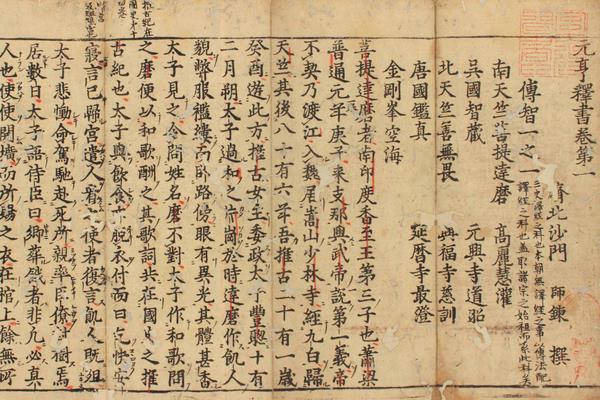 元亨釋書卷第一
濟北沙門 師錬 撰
傳智一之一
南天竺菩提達磨 高麗慧灌
吳國智藏 元興寺道昭
北天竺善無畏 興福寺慈訓
唐國鑑真 延曆寺最澄
金剛峯空海
菩提達磨者南印度香至王第三子也蕭梁
普通元年庚子來支那與武帝説第一義帝
不契乃渡江入魏居嵩山少林寺經九白歸
天竺其後八十有六年吾推古二十有一歳
癸酉遊此方推古女主委政太子豐聰十有
二月朔太子過和之片岡於時達磨作飢人
貌弊服襤褸而臥路傍眼有異光其體甚香
太子見之令問姓名磨不對太子作和歌問
之磨便以和歌酬之其歌詞共在國史之推
古紀也太子與飲食脫衣付而曰快安
寢言已歸宮遣人看之使者復言飢人既殂
太子悲慟命駕馳赴死所親率臣僚樹焉
居數日太子語侍臣曰者非凡必真
人也使使開壙而所賜之衣在棺上餘無所